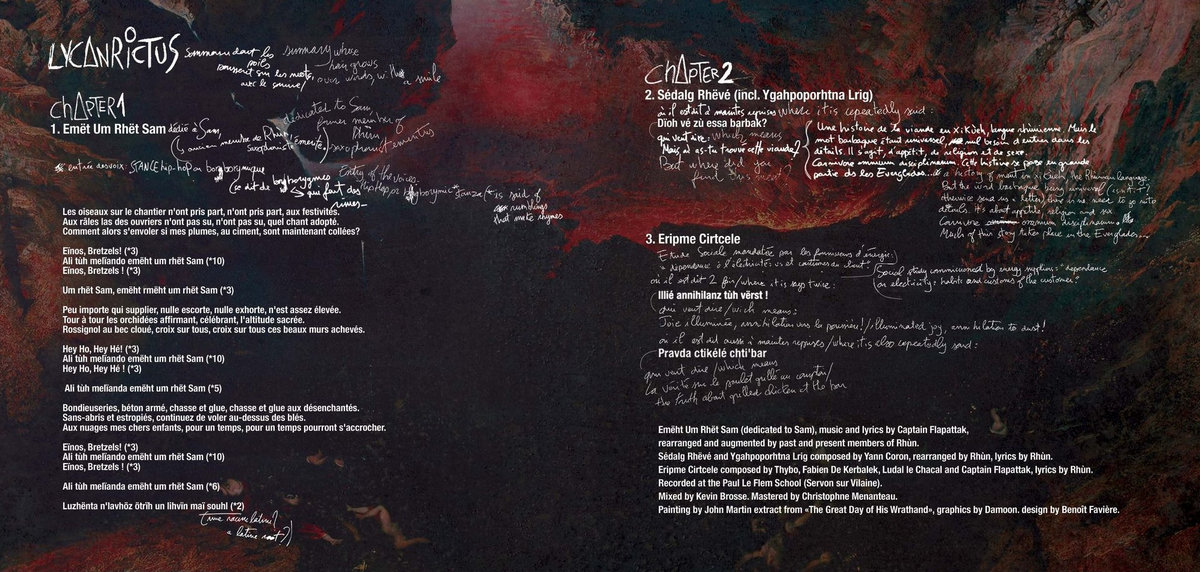 LYCANRICTUS
Sommaire dont les poils
poussent sur les mots,
avec le sourire/
summary whose
hair grows
over words, with
a smile
CHAPTER 1
1. Emët Um Rhët Sam dédié à Sam,
ancien membre de Rhùn,
saxophoniste émérite/
dedicated to Sam,
former member of
Rhùn,
saxophonist emeritus
entrée des voix: STANCE hip-hop ou borborygmique
(se dit de borborygmes
qui font des
rimes
Entry of the voices.
hip hop, or borborygmic stanza (* is said of
rumblings
that make rhymes
Les oiseaux sur le chantier n'ont pris part, n'ont pris part, aux festivités.
Aux râles las des ouvriers n'ont pas su, n'ont pas su, quel chant adopté.
Comment alors s'envoler si mes plumes, au ciment, sont maintenant collées?
Eïnos, Bretzels! (*3)
Ali tùh melïando emëht um rhët Sam (*10)
Eïnos, Bretzels ! (*3)
Um rhët Sam, emëht rmëht um rhët Sam (*3)
Peu importe qui supplier, nulle escorte, nulle exhorte, n'est assez élevée.
Tour à tour les orchidées affirmant, célébrant, l'altitude sacrée.
Rossignol au bec cloué, croix sur tous, croix sur tous ces beaux murs achevés.
Hey Ho, Hey Hé! (*3)
Ali tùh melïando emëht um rhët Sam (*10)
Hey Ho, Hey Hé ! (*3)
Ali tùh melïanda emëht um rhët Sam (*5)
Bondieuseries, béton armé, chasse et glue, chasse et glue aux désenchantés.
Sans-abris et estropiés, continuez de voler au-dessus des blés.
Aux nuages mes chers enfants, pour un temps, pour un temps pourront s'accrocher.
Eïnos, Bretzels! (*3)
Ali tùh melïando emëht um rhët Sam (*10)
Eïnos, Bretzels ! (*3)
Ali tùh melïanda emëht um rhët Sam (*6)
Luzhënta n'lavhöz ötrïh un lihvïn maï souhl (*2)
(une racine latine?
a latine root?)
CHAPTER 2
2. Sédalg Rhëvé (incl. Ygahpoporhtna Lrig)
où il est dit à maintes reprises where it is repeatedly said:
Dïoh vé zù essa barbak?
qui veut dire, which means
Mais où as-tu trouvé cette viande/
But where did you
find this meat?
Une histoire de la viande en Xikùeh, langue rhùnienne. Mais le
mot barbaque étant universel, nul besoin d'entrer dans les
détails. Il s'agit, d'appétit, de religion et de sexe.
Carnivore omnium disciplinarum. Cette histoire se passe en grande
partie ds les Everglades...
a history of meat in Xikùeh, the Rhùnian language.
But the word barbaque being universal (isn't it?
otherwise send us a letter) there is no need to go into
details. It's about appetite, religion and sex
Carnivore omnium disciplinarum
Much of this story takes place in the Everglades...
3. Eripme Cirtcele
Etude Sociale mandatée par les fournisseurs d'énergie:
"dépendance à l'électricité: us et coutumes du client"
/Social study commissioned by energy suppliers: "dependance
on electricity: habits and customs of the customer"
où il est dit 2 fois/where it is says twice:
Illié annihilanz tùh vërst !
qui veut dire/wich means:
Joie illuminée, annihilation vers la poussière!/illuminated joy, annihilation to dust!
où il est dit aussi à maintes reprises/where it is also repeatedly said:
Pravda ctikélé chti'bar
qui veut dire/which means
La vérité sur le poulet grillé au comptoir/
the truth about grilled chicken at the bar
Emëht Um Rhët Sam (dedicated to Sam), music and lyrics by Captain Flapattak,
rearranged and augmented by past and present members of Rhùn.
Sédalg Rhëvé and Ygahpoporhtna Lrig composed by Yann Coron, rearranged by Rhùn, lyrics by Rhùn.
Eripme Cirtcele composed by Thybo, Fabien De Kerbalek, Ludal le Chacal and Captain Flapattak, lyrics by Rhùn.
Recorded at the Paul Le Flem School (Servon sur Vilaine).
Mixed by Kevin Brosse. Mastered by Christophne Menanteau.
Painting by John Martin extract from «The Great Day of His Wrathand», graphics by Damoon. design by Benoît Favière.